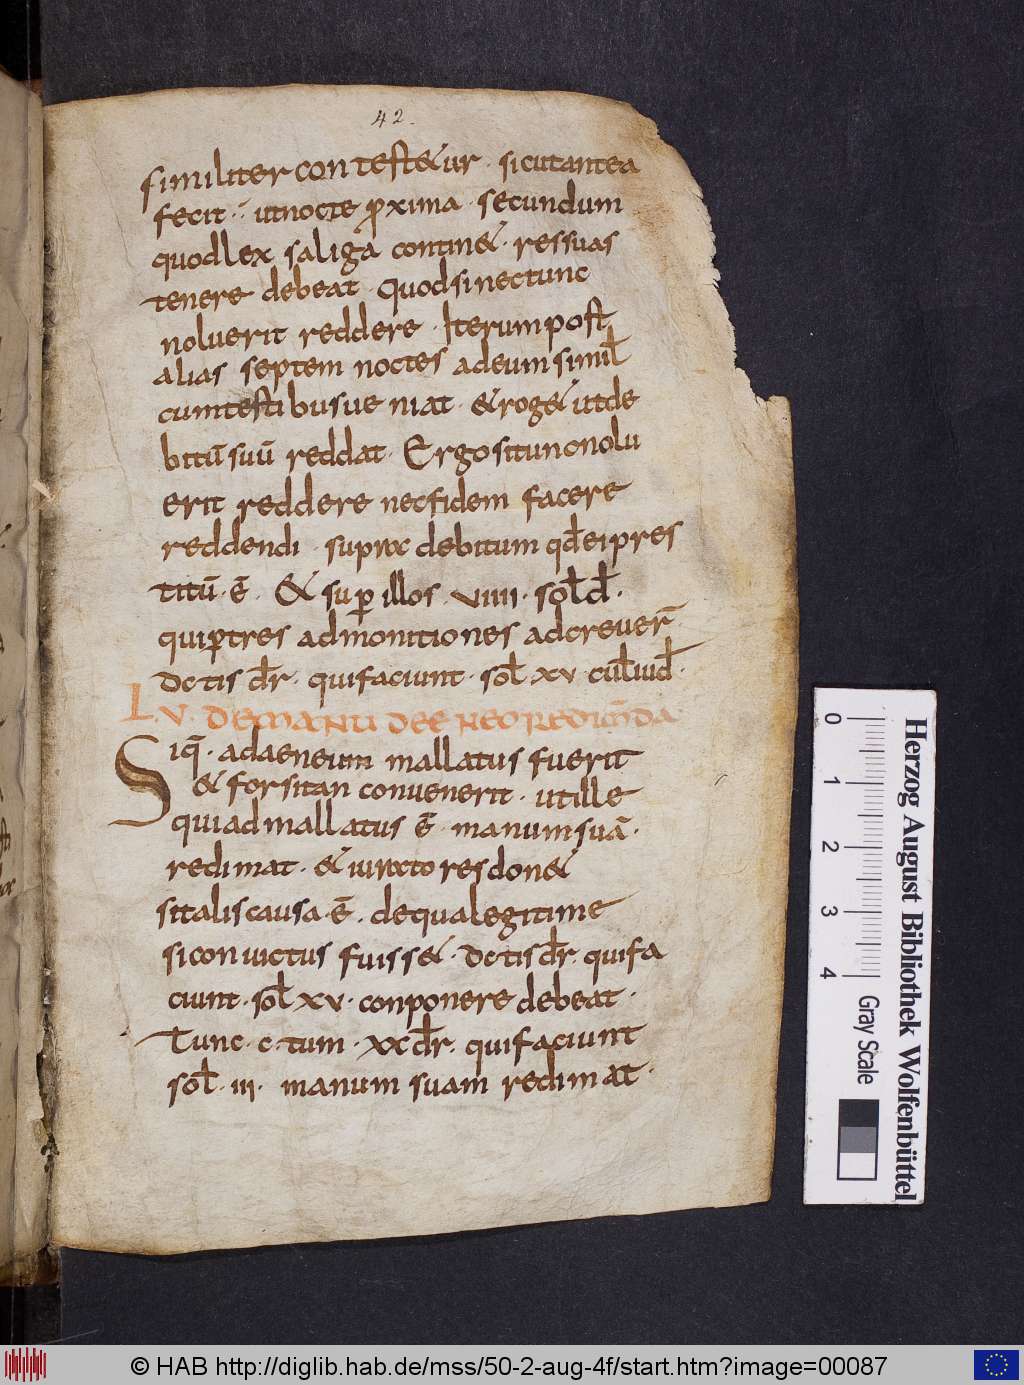 42.
similiter contest&ur · sicutantea
fecit · utnocte ꝓxima · secundum
quodlex saliga contin& · ressuas
tenere debeat · quodsinectunc
noluerit reddere · Iterumpost
alias septem noctes adeumsimił
cumtestibusue niat · &rog& utde
bitū suū reddat · Ergositunonolu
erit reddere necfidem facere
reddendi · suprax debitum qđeipres
titū · ē · & suꝑ illos · viiii · soł đ ·
quiꝑtres admonitiones adcreuer̄
Dctis đr · quifaciunt · soł xv · cuł iuđ ·
LV · DEMANU DEENEOREDIMEDA
Siq̄ · adaeneum mallatus fuerit
& forsitan convenerit · utille
quiadmallatus ē · manumsuā ·
redimat · & iuraxtores don&
sitaliscausa · ē · dequalegitime
siconvictus fuiss& · Dctis đr · quifa
ciunt · soł xv · conponere debeat ·
Tunc · c · tum · xx đr · quifaciunt
soł · iii · manum suam redimat ·
0 1 2 3 4
Gray Scale
Herzog August Bibliothek Wolfenbüttel
© HAB http://diglib.hab.de/mss/50-2-aug-4f/start.htm?image=00087